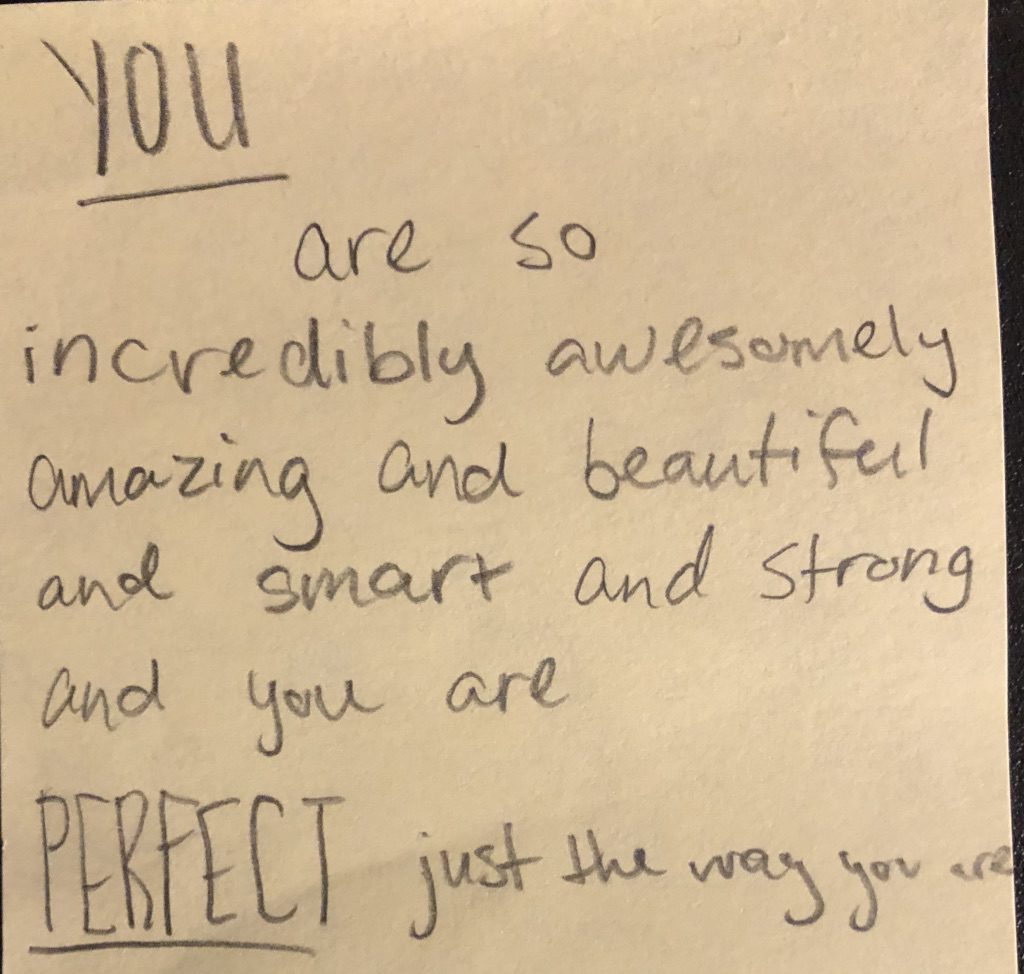 YOU
are so
incredibly awesomely
amazing and beautiful
and smart and strong
and you are
PERFECT just the way you are